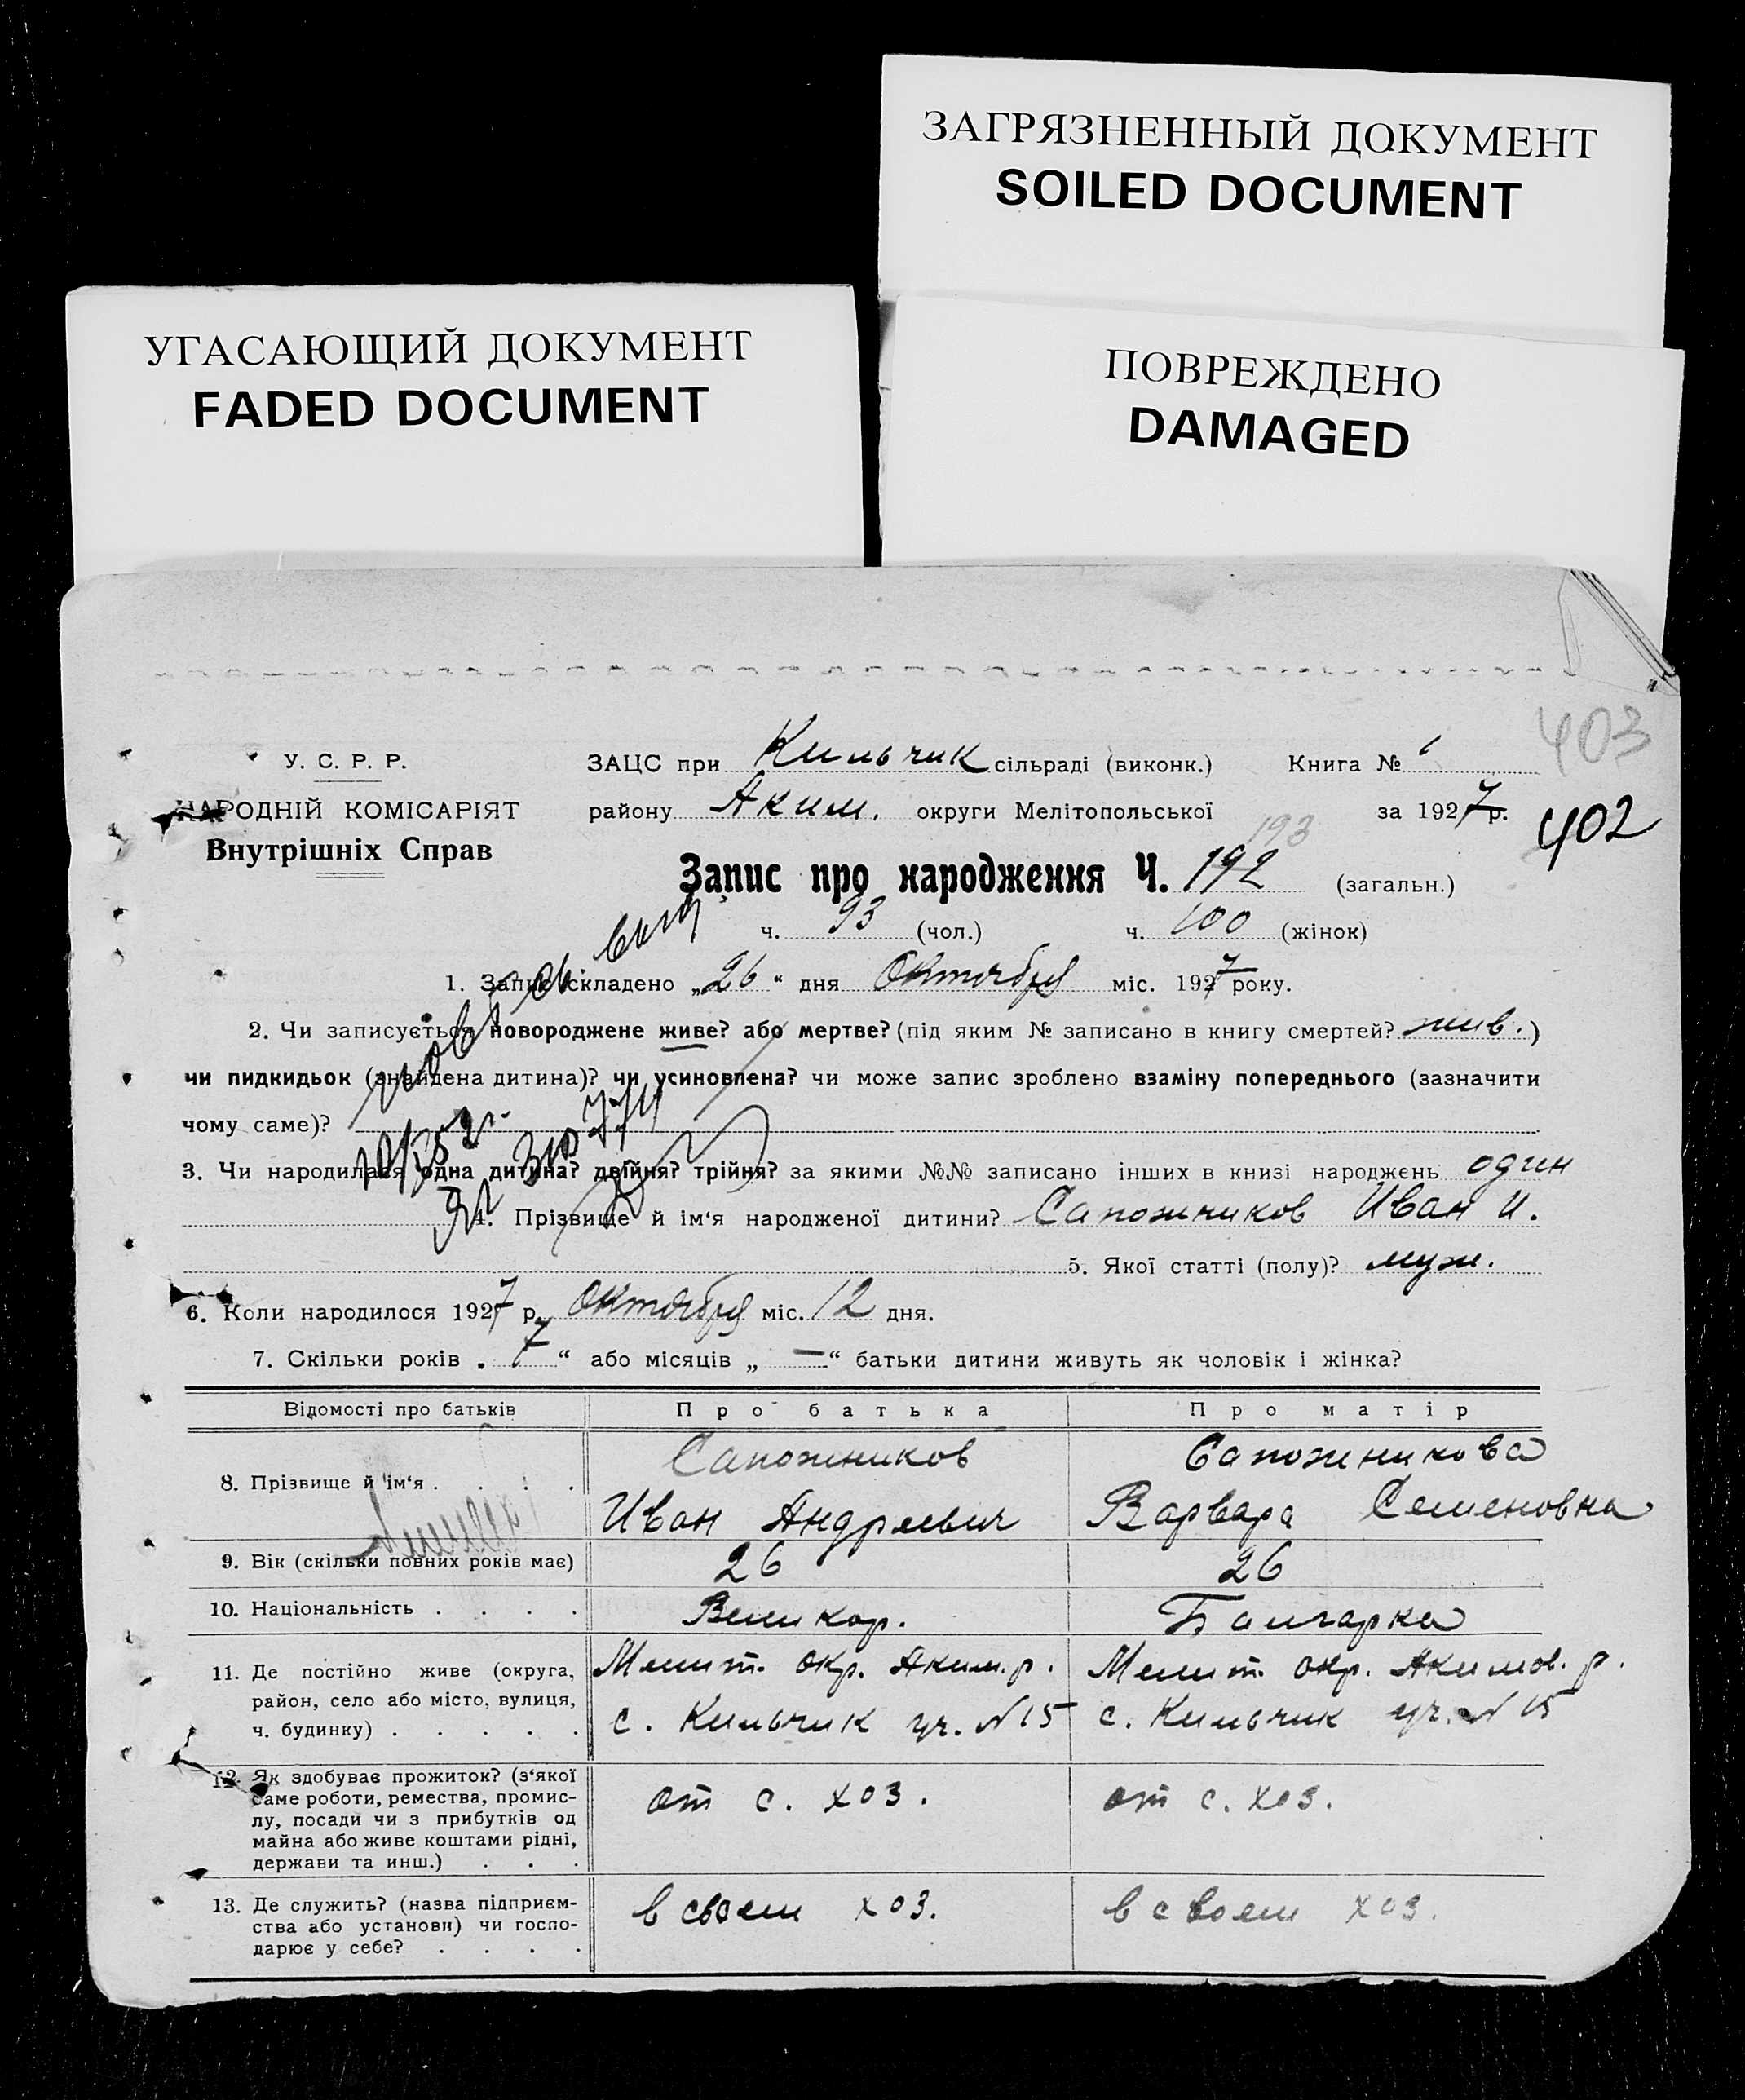 ЗАГРЯЗНЕННЫЙ ДОКУМЕНТ
SOILED DOCUMENT
УГАСАЮЩИЙ ДОКУМЕНТ
FADED DOCUMENT
ПОВРЕЖДЕНО
DAMAGED
403
У. С. Р. Р.
НАРОДНІЙ КОМІСАРІЯТ
Внутрішніх Справ
ЗАЦС при Кильчик сільраді (виконк.) Книга №
району Аким. округи Мелітопольської за 1927 р.
402
193
Запис про народження Ч. 192 (загальн.)
ч. 93 (чол.) ч. 100 (жінок)
1. Запис складено „26“ дня Октября міс. 1927 року.
2. Чи записується новороджене живе? або мертве? (під яким № записано в книгу смертей? жив.)
чи пидкидьок (знайдена дитина)? чи усиновлена? чи може запис зроблено взаміну попереднього (зазначити
чому саме)?
3. Чи народилася одна дитина? двійня? трійня? за якими №№ записано інших в книзі народжень один
4. Прізвище й ім‘я народженої дитини? Сапожников Иван И.
5. Якої статті (полу)? муж.
6. Коли народилося 1927 р. Октября міс. 12 дня.
7. Скільки років „ 7 “ або місяців „ — “ батьки дитини живуть як чоловік і жінка?
Відомості про батьків Про батька Про матір
8. Прізвище й ім‘я . . . . Сапожников Сапожникова
Иван Андреевич Варвара Семеновна
9. Вік (скільки повних років має) 26 26
10. Національність . . . . Великор. Балгарка
11. Де постійно живе (округа, Мелит. окр. Аким. р. Мелит. окр. Акимов. р.
район, село або місто, вулиця,
ч. будинку) . . . . . с. Кильчик уч. №15 с. Кильчик уч. №15
12. Як здобуває прожиток? (з‘якої
саме роботи, ремества, промис-
лу, посади чи з прибутків од от с. хоз. от с. хоз.
майна або живе коштами рідні,
держави та инш.) . . .
13. Де служить? (назва підприєм- в своем хоз. в своем хоз.
ства або установи) чи госпо-
дарює у себе? . . . .